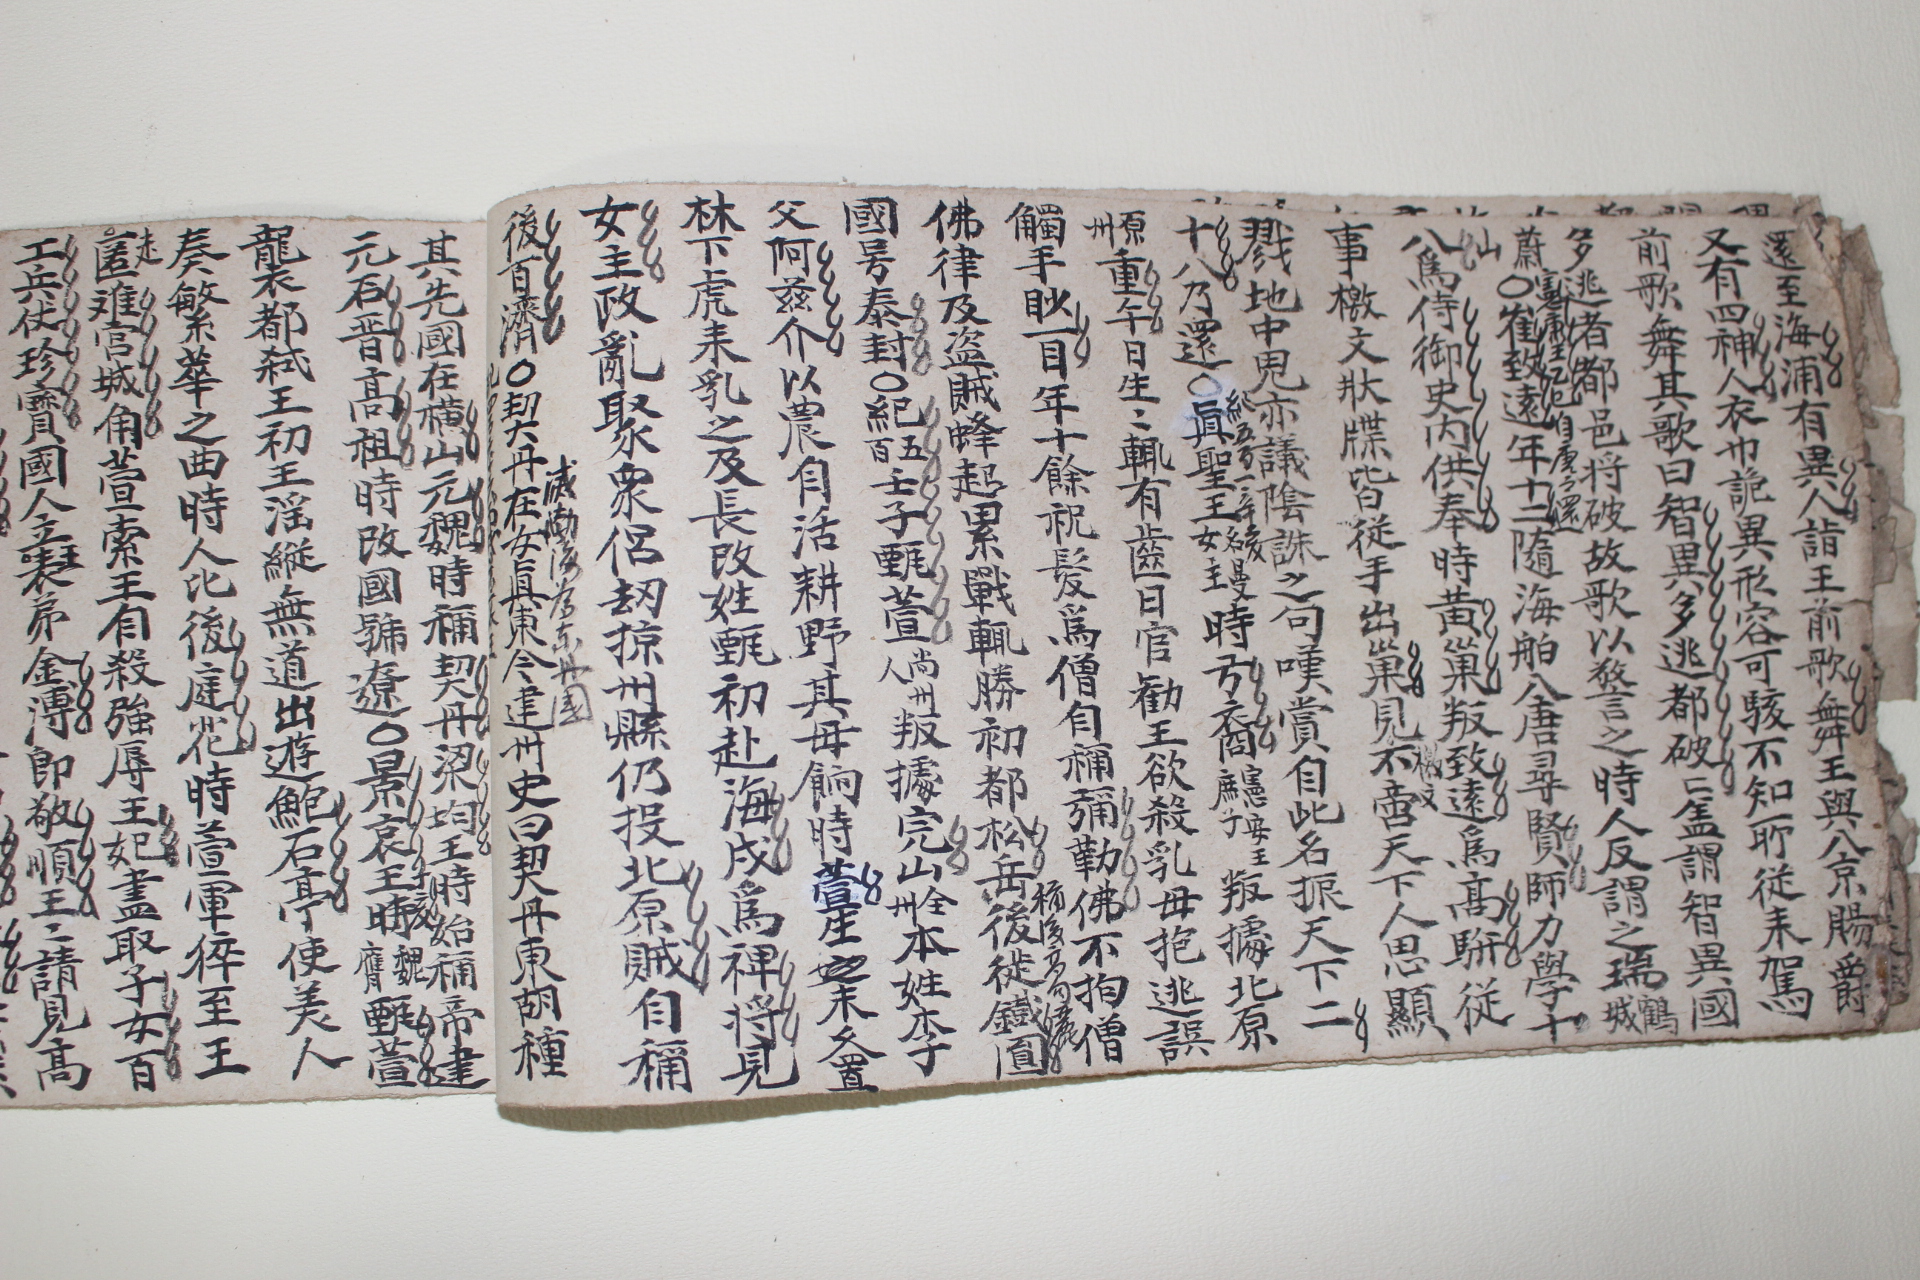 還至海浦有異人詣王前歌舞王與八京賜爵
又有四神人衣巾詭異形容可駭不知所從來駕
前歌舞其歌曰智異多逃都破亡盖謂智異國
多逃者都邑将破故歌以警言之時人反謂之瑞鶴城
蔚山〇崔致遠年十二隨海舶入唐尋賢師力學十
八爲侍御史内供奉時黄巢叛致遠爲高駢從
事檄文狀牒皆從手出巢見檄文不啻天下人思顯
戮地中鬼亦議陰誅之句嘆賞自此名振天下二
十八乃還〇眞聖王女主名曼時弓裔憲安王庶子叛據北原
原州重午日生〻輒有齒日官勸王欲殺乳母抱逃誤
觸手眇一目年十餘祝髮爲僧自稱彌勒佛不拘僧
佛律及盗賊蜂起累戰輒勝初都松岳後徙鐵圓
國号泰封〇紀五百壬子甄萱尚州人叛據完山全州本姓李
父阿玆介以農自活耕野其母餉時萱生之未久置
林下虎来乳之及長改姓甄初赴海戍爲裨将見
女主政亂聚衆侶劫掠州縣仍投北原賊自稱
後百濟〇契丹在女眞東今建州史曰契丹東胡種
滅渤海为东丹國
其先國在橫山元魏時稱契丹梁均王時始稱帝建
元石晋高祖時改國號遼〇景哀王時甄萱
龍衣都弑王初王滛縱無道出遊鮑石亭使美人
奏繁華之曲時人比後庭花時萱軍猝至王
走匿难宮城角萱索王自殺強辱王妃盡取子女百
工兵仗珍寶國人立表弟金溥即敬順王〻請見高